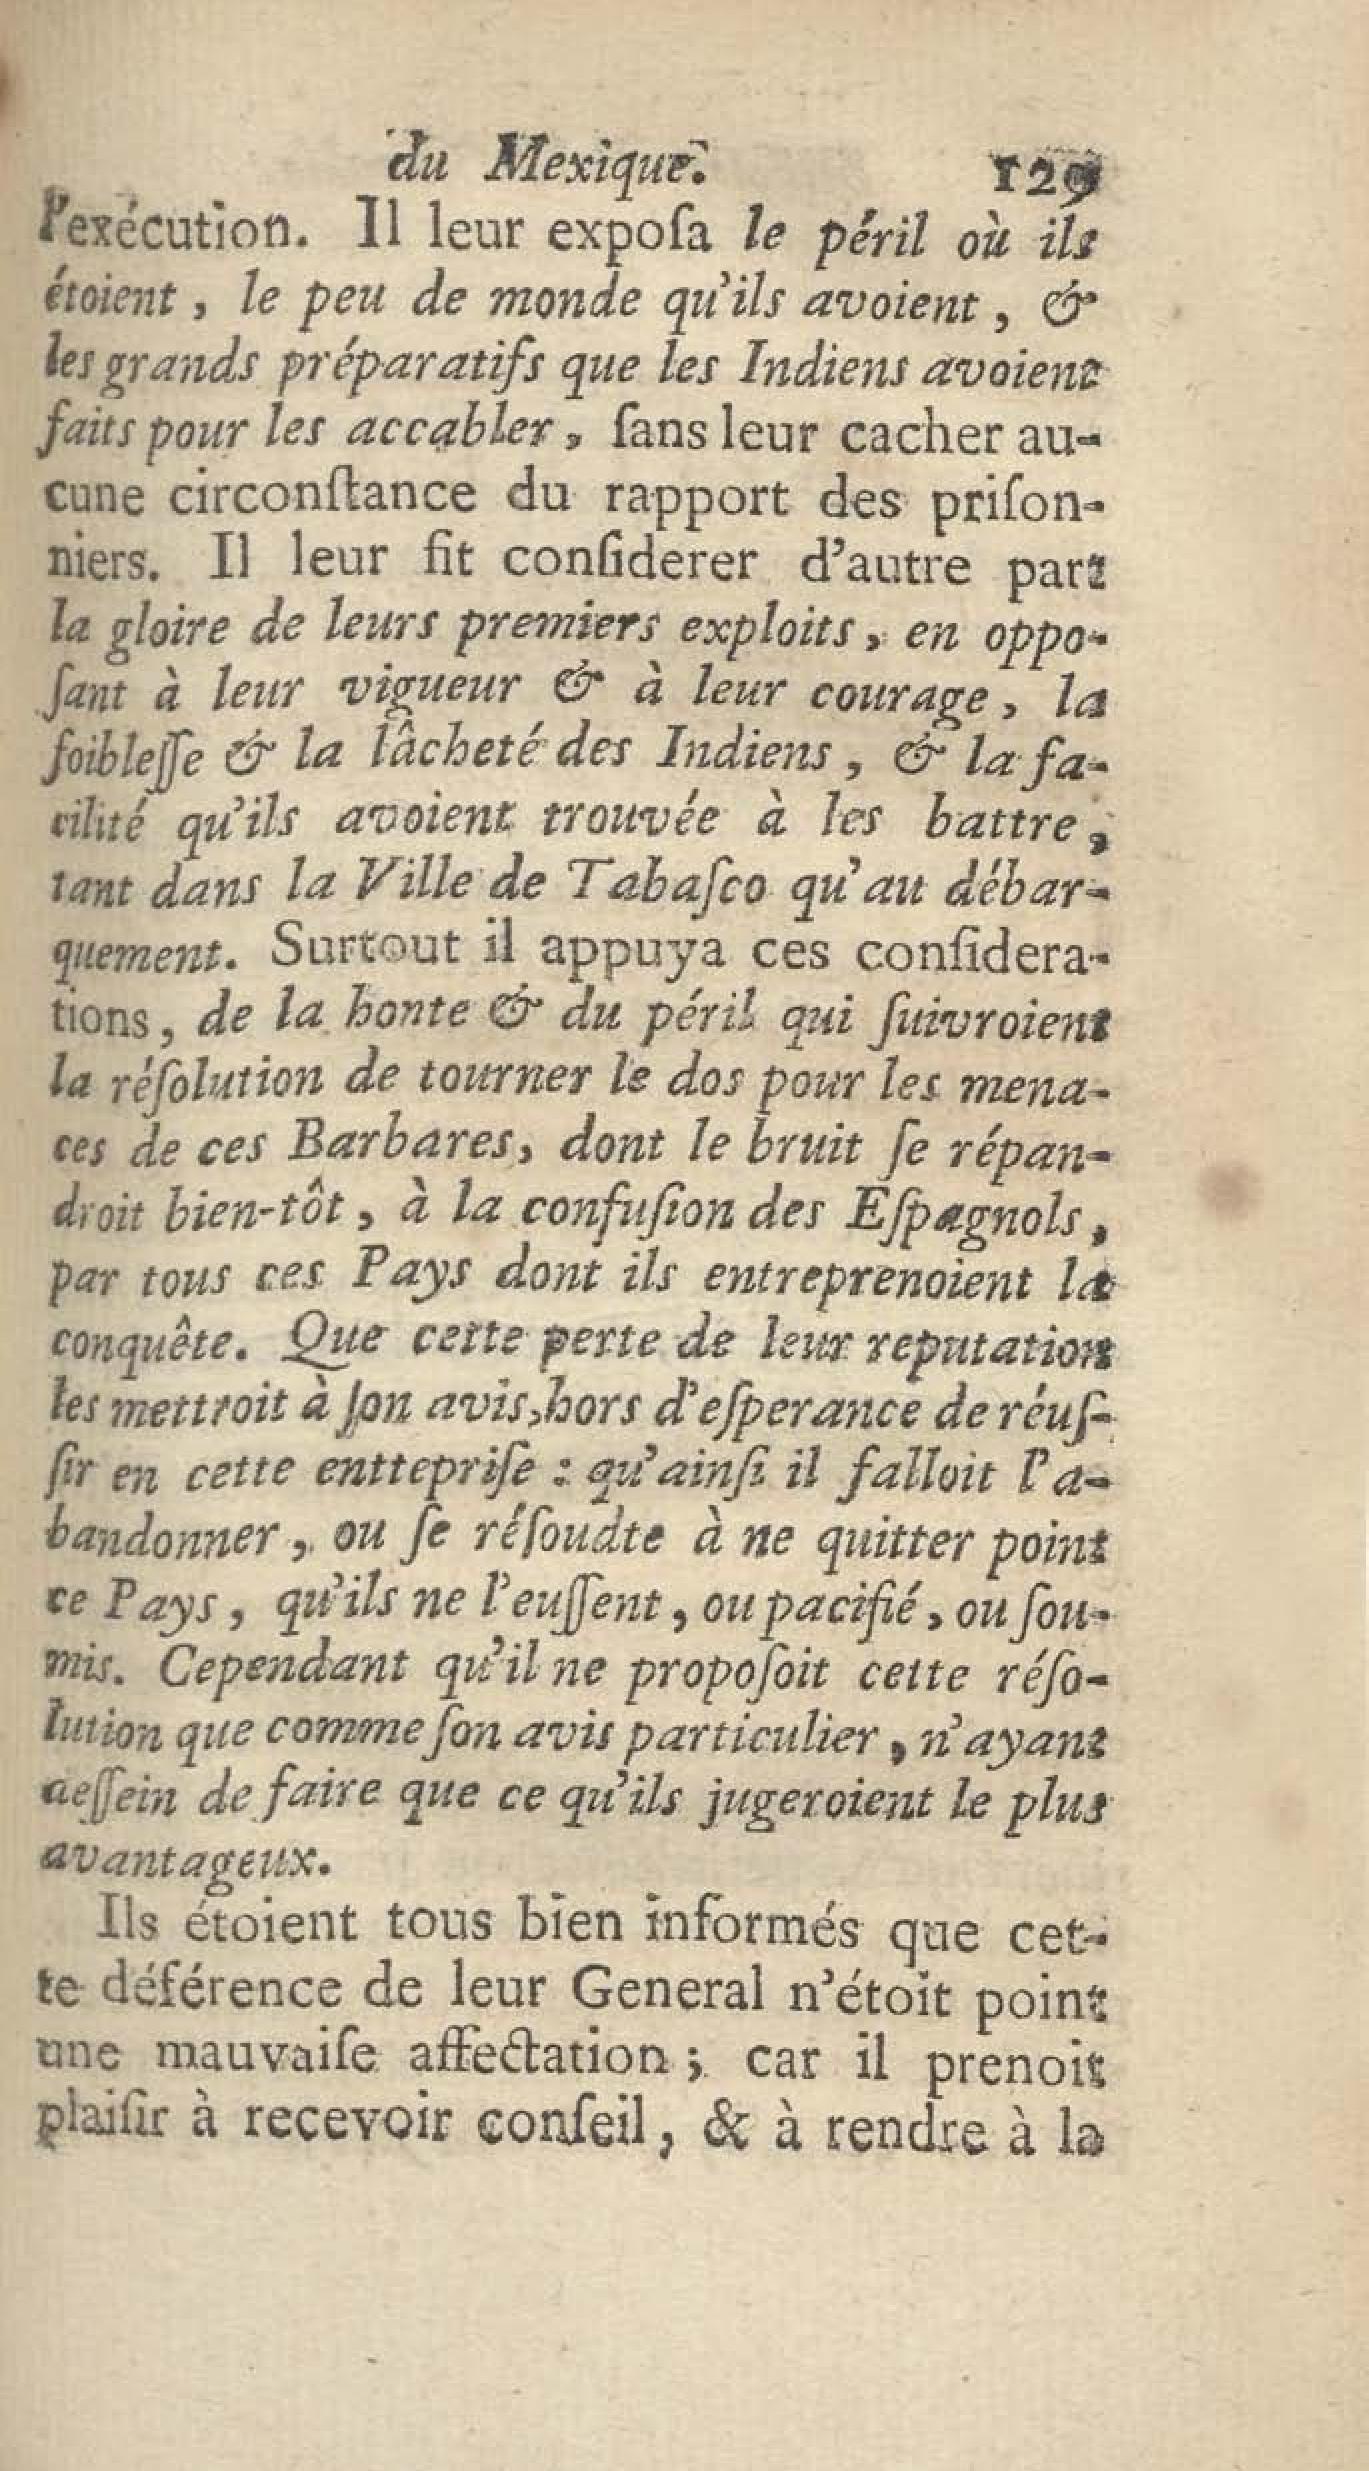 du Mexique. 129
l'exécution. Il leur expoſa le péril où ils
étoient, le peu de monde qu'ils avoient, &
les grands préparatifs que les Indiens avoient
faits pour les accabler, ſans leur cacher au-
cune circonſtance du rapport des priſon-
niers. Il leur fit conſiderer d'autre part
la gloire de leurs premiers exploits, en oppo-
ſant à leur vigueur & à leur courage, la
foibleſſe & la lâcheté des Indiens, & la fa-
cilité qu'ils avoient trouvée à les battre,
tant dans la Ville de Tabaſco qu'au débar-
quement. Surtout il appuya ces conſidera-
tions, de la honte & du péril qui ſuivroient
la réſolution de tourner le dos pour les mena-
ces de ces Barbares, dont le bruit ſe répan-
droit bien-tôt, à la confuſion des Eſpagnols,
par tous ces Pays dont ils entreprenoient la
conquête. Que cette perte de leur reputation
les mettroit à ſon avis, hors d'eſperance de réuſ-
ſir en cette enttepriſe : qu'ainſi il falloit l'a-
bandonner, ou ſe réſoudte à ne quitter point
ce Pays, qu'ils ne l'euſſent, ou pacifié, ou ſou-
mis. Cependant qu'il ne propoſoit cette réſo-
lution que comme ſon avis particulier, n'ayant
deſſein de faire que ce qu'ils jugeroient le plus
avantageux.
Ils étoient tous bien informés que cet-
te déférence de leur General n'étoit point
une mauvaiſe affectation ; car il prenoit
plaiſir à recevoir conſeil, & à rendre à la